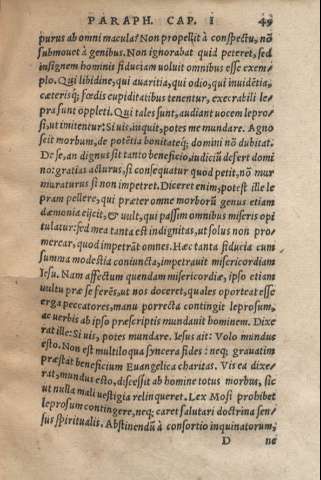 PARAPH. CAP. I 49
purus ab omni macula? Non propellit à conspectu, nõ
submouet à genibus. Non ignorabat quid peteret, sed
insignem hominis fiduciam uoluit omnibus esse exem-
plo. Qui libidine, qui auaritia, qui odio, qui inuidẽtia,
cæterisq; fœdis cupiditatibus tenentur, execrabili le-
pra sunt oppleti. Qui tales sunt, audiant uocem lepro-
si, ut imitentur: Si uis, inquit, potes me mundare. Agno
scit morbum, de potẽtia bonitateq; domini nõ dubitat.
De se, an dignus sit tanto beneficio, iudiciũ defert domi
no: gratias acturus, si consequatur quod petit, nõ mur
muraturus si non impetret. Diceret enim, potest ille le
pram pellere, qui præter omne morborũ genus etiam
dæmonia eijcit, & uult, qui passim omnibus miseris opi
tulatur: sed mea tanta est indignitas, ut solus non pro-
merear, quod impetrãt omnes. Hæc tanta fiducia cum
summa modestia coniuncta, impetrauit misericordiam
Iesu. Nam affectum quendam misericordiæ, ipso etiam
uultu præ se ferẽs, ut nos doceret, quales oporteat esse
erga peccatores, manu porrecta contingit leprosum,
ac uerbis ab ipso præscriptis mundauit hominem. Dixe
rat ille: Si uis, potes mundare. Iesus ait: Volo mundus
esto. Non est multiloqua syncera fides: neq; grauatim
præstat beneficium Euangelica charitas. Vix ea dixe-
rat, mundus esto, discessit ab homine totus morbus, sic
ut nulla mali uestigia relinqueret. Lex Mosi prohibet
leprosum contingere, neq; caret salutari doctrina sen-
sus spiritualis. Abstinendũ à consortio inquinatorum,
D ne